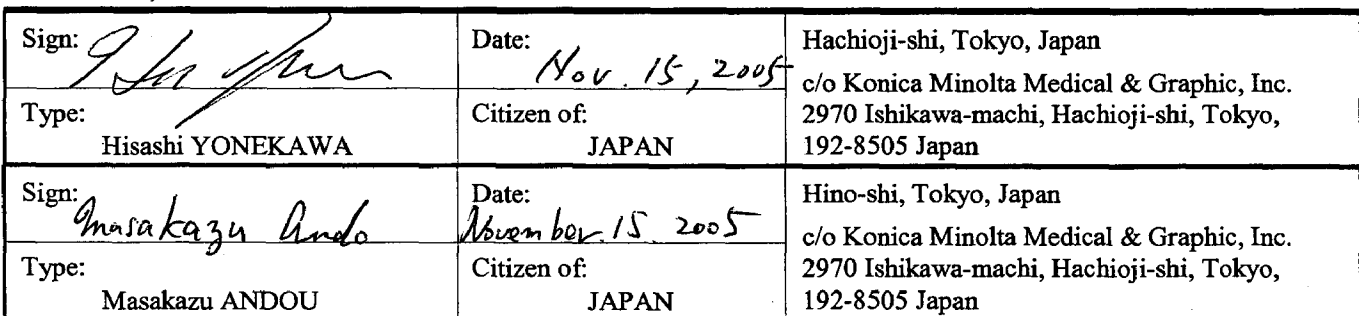 Sign:
Date: Nov. 15, 2005
Hachioji-shi, Tokyo, Japan
c/o Konica Minolta Medical & Graphic, Inc.
2970 Ishikawa-machi, Hachioji-shi, Tokyo,
192-8505 Japan
Type:
Hisashi YONEKAWA
Citizen of:
JAPAN
Sign: Masakazu Ando
Date: November. 15 2005
Hino-shi, Tokyo, Japan
c/o Konica Minolta Medical & Graphic, Inc.
2970 Ishikawa-machi, Hachioji-shi, Tokyo,
192-8505 Japan
Type:
Masakazu ANDOU
Citizen of:
JAPAN